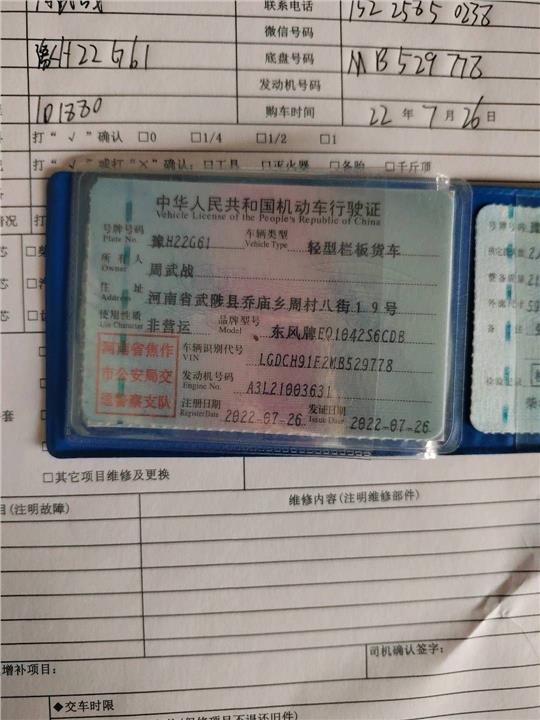 联系电话 152 2585 0238
微信号码
豫H22G61 底盘号码 MB529778
发动机号码
101880 购车时间 22年7月26日
打“√”确认 □0 □1/4 □1/2 □1
打“√”或打“×”确认：□工具 □灭火器 □备胎 □千斤顶
中华人民共和国机动车行驶证
Vehicle License of the People's Republic of China
号牌号码 豫H22G61 车辆类型 轻型栏板货车
Plate No. Vehicle Type
所有人 周武战
Owner
住址 河南省武陟县乔庙乡周村八街19号
Address
使用性质 非营运 品牌型号 东风牌EQ1042S6CDB
Use Character Model
河南省焦作
市公安局交
通警察支队
车辆识别代号 LGDCH91F2MB529778
VIN
发动机号码 A3L21003631
Engine No.
注册日期 2022-07-26 发证日期 2022-07-26
Register Date Issue Date
□其它项目维修及更换
目(注明故障) 维修内容(注明维修部件)
司机确认签字：
增补项目：
◆交车时限